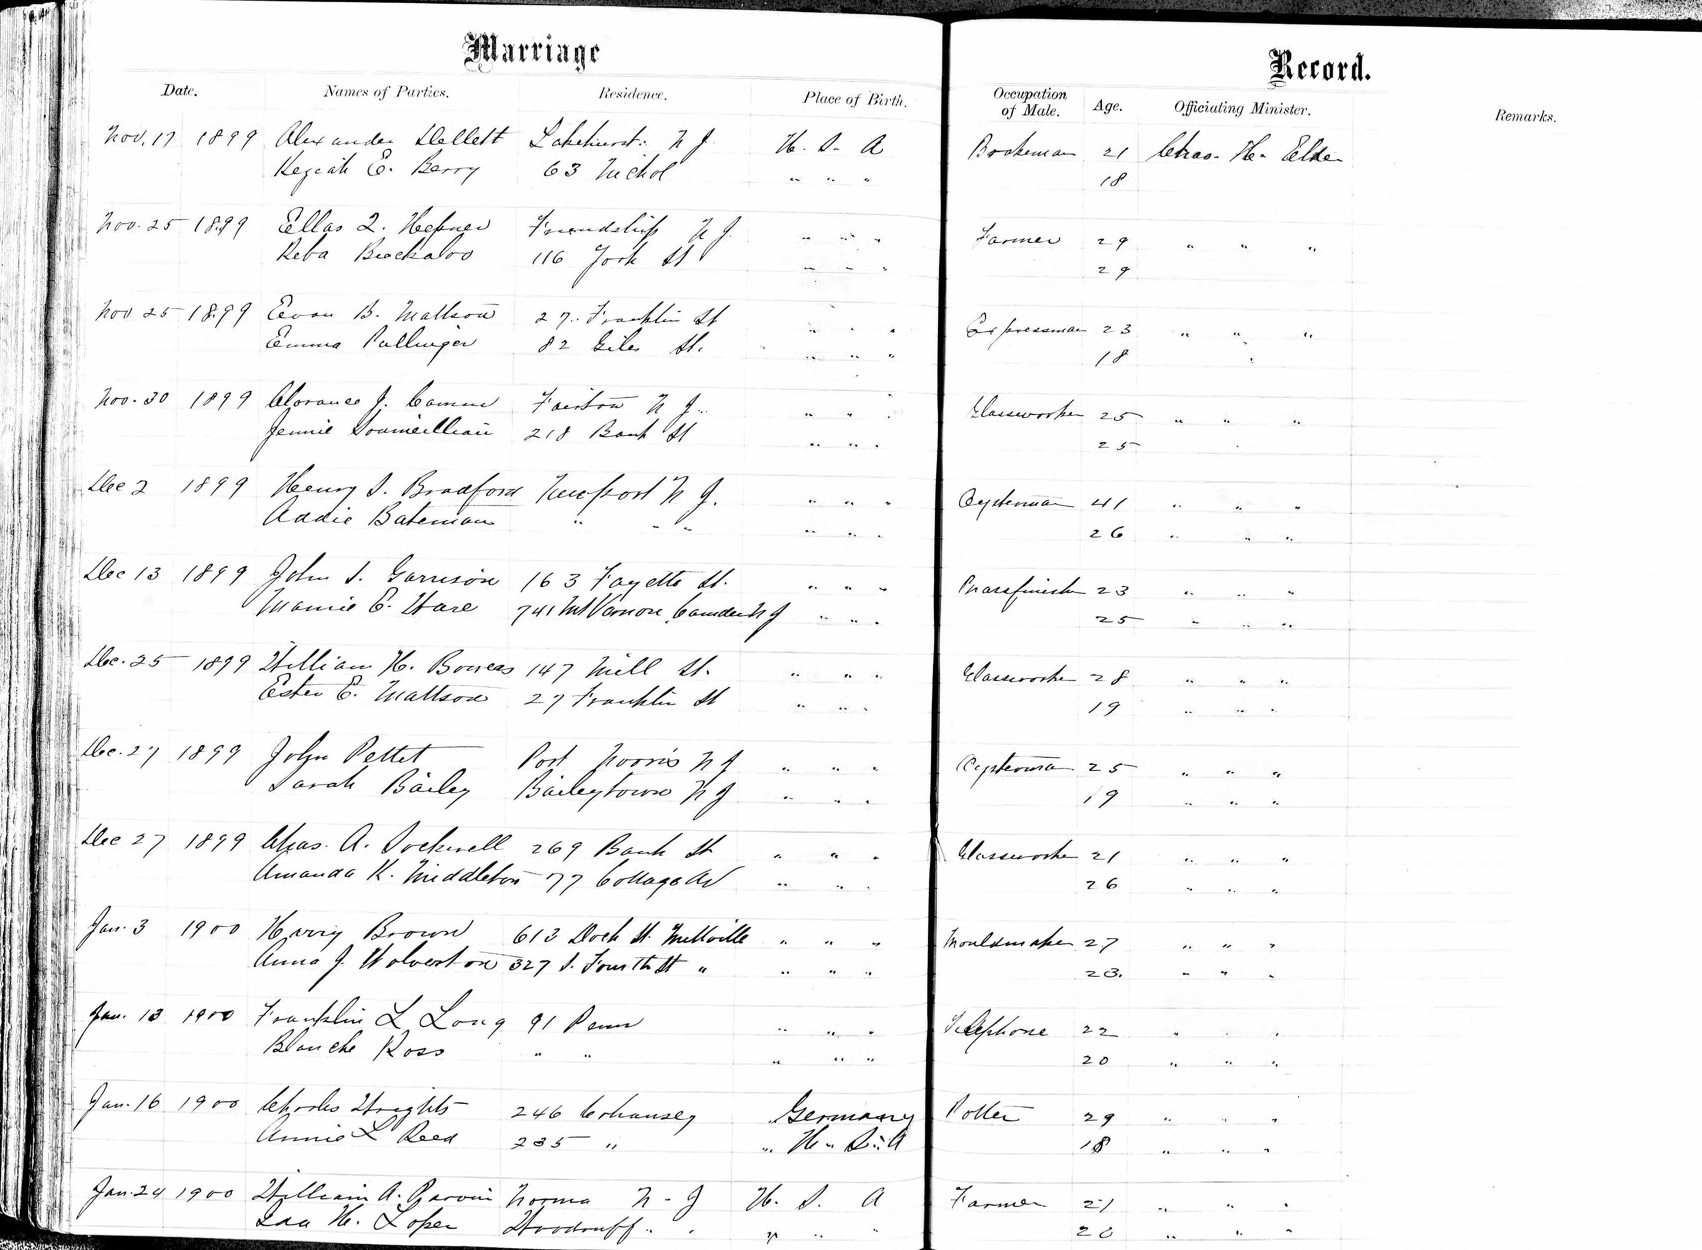 Marriage Record.
Date. Names of Parties. Residence. Place of Birth. Occupation of Male. Age. Officiating Minister. Remarks.
Nov. 17 1899 Alexander Dellett Lakehurst N J U. S. A Brakeman 21 Chas. H. Elder
Keziah E. Berry 63 Nichol " " " 18
Nov. 25 1899 Ellas Q. Hepner Friendship N J " " " Farmer 29 " " "
Reba Brockaloo 116 York St " " " 29
Nov 25 1899 Evan B. Mattson 27 Franklin St " " " Expressman 23 " " "
Emma Pullinger 82 Giles St. " " " 18
Nov. 30 1899 Clarance J. Camm Fairton N J. " " " Glassworker 25 " " "
Jennie 218 Bank St " " " 25
Dec 2 1899 Henry S. Bradford Newport N J. " " " Oysterman 41 " " "
Addie Bateman " " " " " " 26 " " "
Dec 13 1899 John S. Garrison 163 Fayette St. " " " Brassfinisher 23 " " "
Mamie E. Hare 741 Mt Vernon Camden N J " " " 25 " " "
Dec. 25 1899 William H. Bowers 147 Mill St. " " " Glassworker 28 " " "
Ester E. Mattson 27 Franklin St " " " 19 " " "
Dec. 27 1899 John Pettet Port Norris N J " " " Oysterman 25 " " "
Sarah Bailey Baileytown N J " " " 19 " " "
Dec 27 1899 Chas. A. Sockwell 269 Bank St " " " Glassworker 21 " " "
Amanda K. Middleton 77 Cottage Av " " " 26 " " "
Jan. 3 1900 Harry Brown 613 Dock St. Millville " " " Mouldmaker 27 " " "
Anna J. Wolverton 327 S. Fourth St " " " " 23. " " "
Jan. 13 1900 Franklin L Long 91 Penn " " " Telephone 22 " " "
Blanche Ross " " " " " 20 " " "
Jan. 16 1900 Charles Wrights 246 Cohansey Germany Potter 29 " " "
Annie L Reed 235 " " U. S. A 18 " " "
Jan. 24 1900 William A. Garvin Norma N. J U. S. A Farmer 21 " " "
Ida H. Loper Woodruff " " " " " 20 " " "